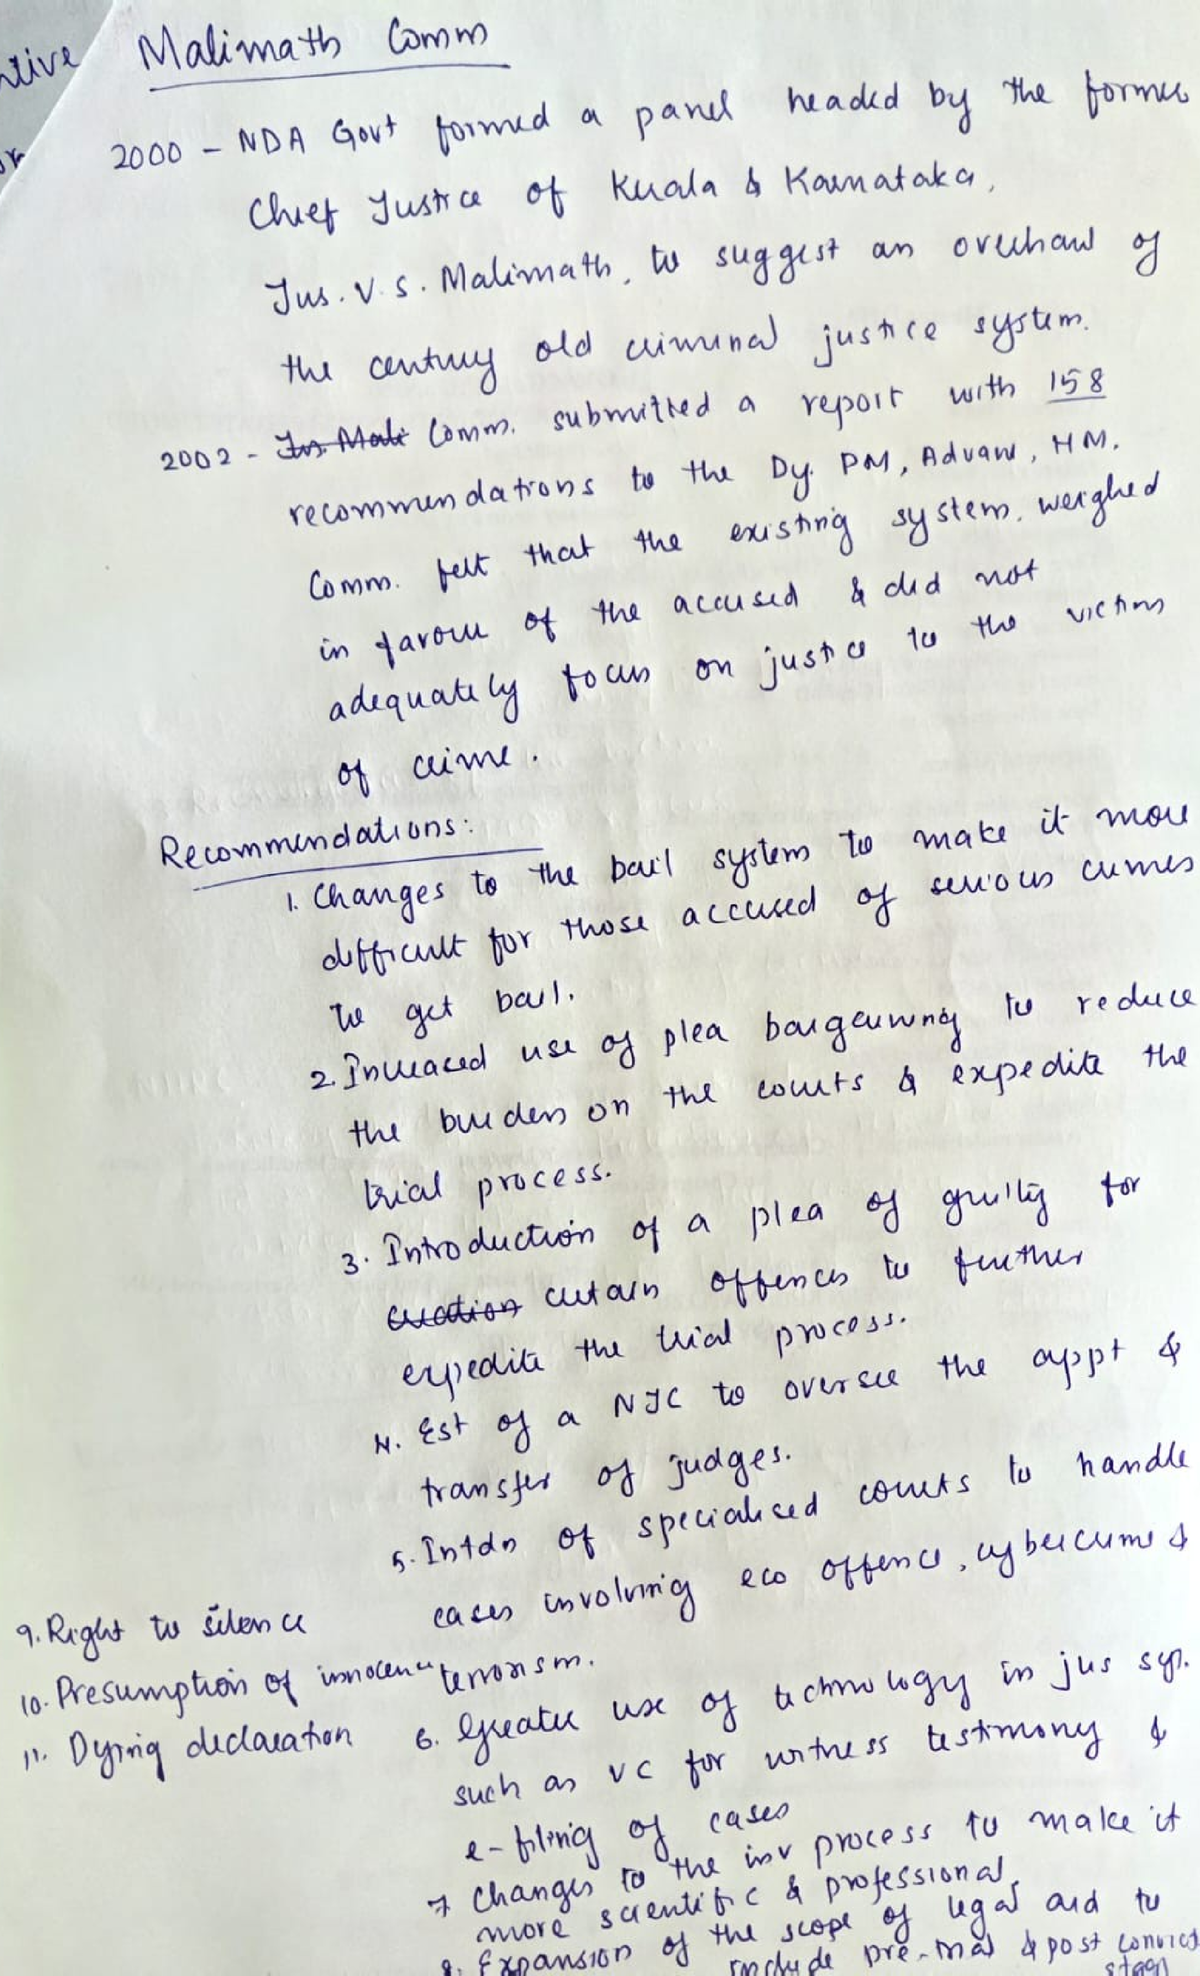 ntive
Malimath Comm
2000 - NDA Govt formed a panel headed by the former
Chief Justice of Kerala & Karnataka,
Jus. V. S. Malimath, to suggest an overhaul of
the century old criminal justice system.
2002 - Jus. Mali Comm. submitted a report with 158
recommendations to the Dy. PM, Advani, HM.
Comm. felt that the existing system, weighed
in favour of the accused & did not
adequately focus on justice to the victims
of crime.
Recommendations:
1. Changes to the bail system to make it more
difficult for those accused of serious crimes
to get bail.
2. Increased use of plea bargaining to reduce
the burden on the courts & expedite the
trial process.
3. Introduction of a plea of guilty for
certain offences to further
expedite the trial process.
4. Est of a NJC to oversee the appt &
transfer of judges.
5. Intdn of specialised courts to handle
cases involving eco offence, cybercrime &
terrorism.
6. Greater use of technology in jus sys.
such as VC for witness testimony &
e-filing of cases
7 Changes to the inv process to make it
more scientific & professional.
8. Expansion of the scope of legal aid to
include pre-trial & post convict
stage
9. Right to silence
10. Presumption of innocence
11. Dying declaration